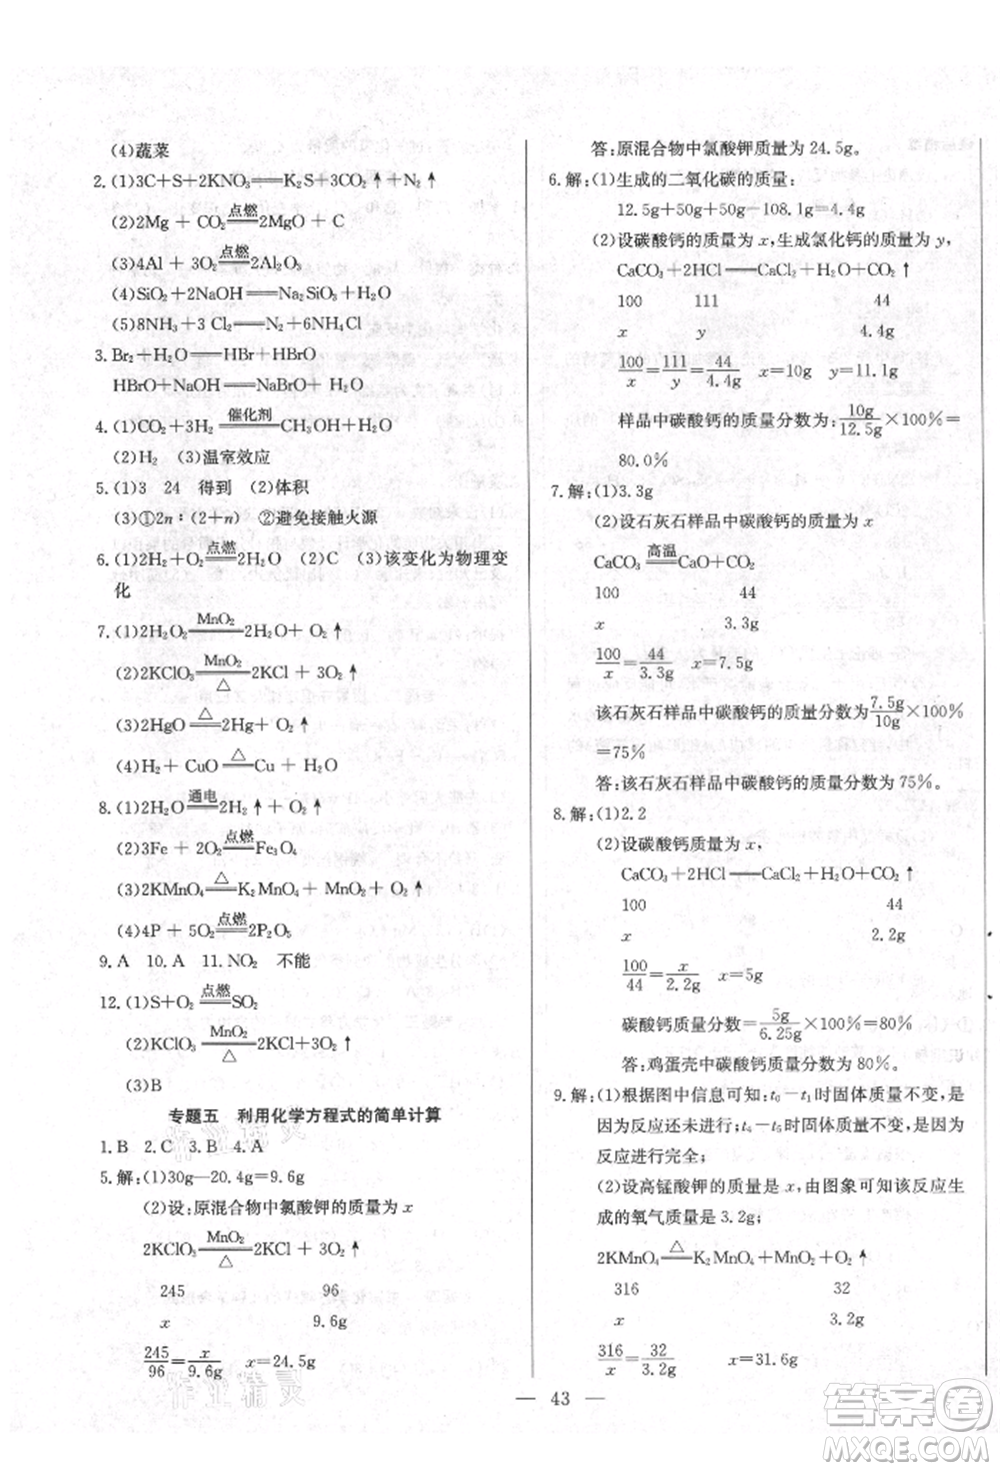 (4)蔬菜
2.(1)3C+S+2KNO₃══K₂S+3CO₂↑+N₂↑
(2)2Mg + CO₂ 点燃══ 2MgO + C
(3)4Al + 3O₂ 点燃══ 2Al₂O₃
(4)SiO₂+2NaOH══Na₂SiO₃+H₂O
(5)8NH₃+3 Cl₂══N₂+6NH₄Cl
3.Br₂+H₂O══HBr+HBrO
HBrO+NaOH══NaBrO+H₂O
4.(1)CO₂+3H₂ 催化剂→ CH₃OH+H₂O
(2)H₂ (3)温室效应
5.(1)3 24 得到 (2)体积
(3)①2n∶(2+n) ②避免接触火源
6.(1)2H₂+O₂ 点燃══ 2H₂O (2)C (3)该变化为物理变
化
7.(1)2H₂O₂ MnO₂══ 2H₂O + O₂↑
(2)2KClO₃ MnO₂══△ 2KCl + 3O₂↑
(3)2HgO △══ 2Hg+O₂↑
(4)H₂ + CuO △══ Cu + H₂O
8.(1)2H₂O 通电══ 2H₂↑+O₂↑
(2)3Fe + 2O₂ 点燃══ Fe₃O₄
(3)2KMnO₄ △══ K₂MnO₄+MnO₂+O₂↑
(4)4P + 5O₂ 点燃══ 2P₂O₅
9.A 10.A 11.NO₂ 不能
12.(1)S+O₂ 点燃══ SO₂
(2)2KClO₃ MnO₂══△ 2KCl + 3O₂↑
(3)B
专题五 利用化学方程式的简单计算
1.B 2.C 3.B 4.A
5.解:(1)30g—20.4g=9.6g
(2)设:原混合物中氯酸钾的质量为 x
2KClO₃ MnO₂══△ 2KCl + 3O₂↑
245 96
x 9.6g
245/96=x/9.6g x=24.5g
答:原混合物中氯酸钾质量为 24.5g。
6.解:(1)生成的二氧化碳的质量:
12.5g+50g+50g-108.1g=4.4g
(2)设碳酸钙的质量为 x,生成氯化钙的质量为 y,
CaCO₃+2HCl══CaCl₂+H₂O+CO₂↑
100 111 44
x y 4.4g
100/x=111/y=44/4.4g x=10g y=11.1g
样品中碳酸钙的质量分数为 10g/12.5g×100%=
80.0%
7.解:(1)3.3g
(2)设石灰石样品中碳酸钙的质量为 x
CaCO₃ 高温══ CaO+CO₂
100 44
x 3.3g
100/x=44/3.3g x=7.5g
该石灰石样品中碳酸钙的质量分数为 7.5g/10g×100%
=75%
答:该石灰石样品中碳酸钙的质量分数为 75%。
8.解:(1)2.2
(2)设碳酸钙质量为 x,
CaCO₃+2HCl══CaCl₂+H₂O+CO₂↑
100 44
x 2.2g
100/44=x/2.2g x=5g
碳酸钙质量分数=5g/6.25g×100%=80%
答:鸡蛋壳中碳酸钙质量分数为 80%。
9.解:(1)根据图中信息可知:t₀－t₁时固体质量不变,
因为反应还未进行;t₄－t₅时固体质量不变,因为
反应进行完全;
(2)设高锰酸钾的质量是 x,由图象可知该反应生
成的氧气质量是 3.2g;
2KMnO₄ △══ K₂MnO₄+MnO₂+O₂↑
316 32
x 3.2g
316/x=32/3.2g x=31.6g
— 43 —
答案圈
MXQE.COM